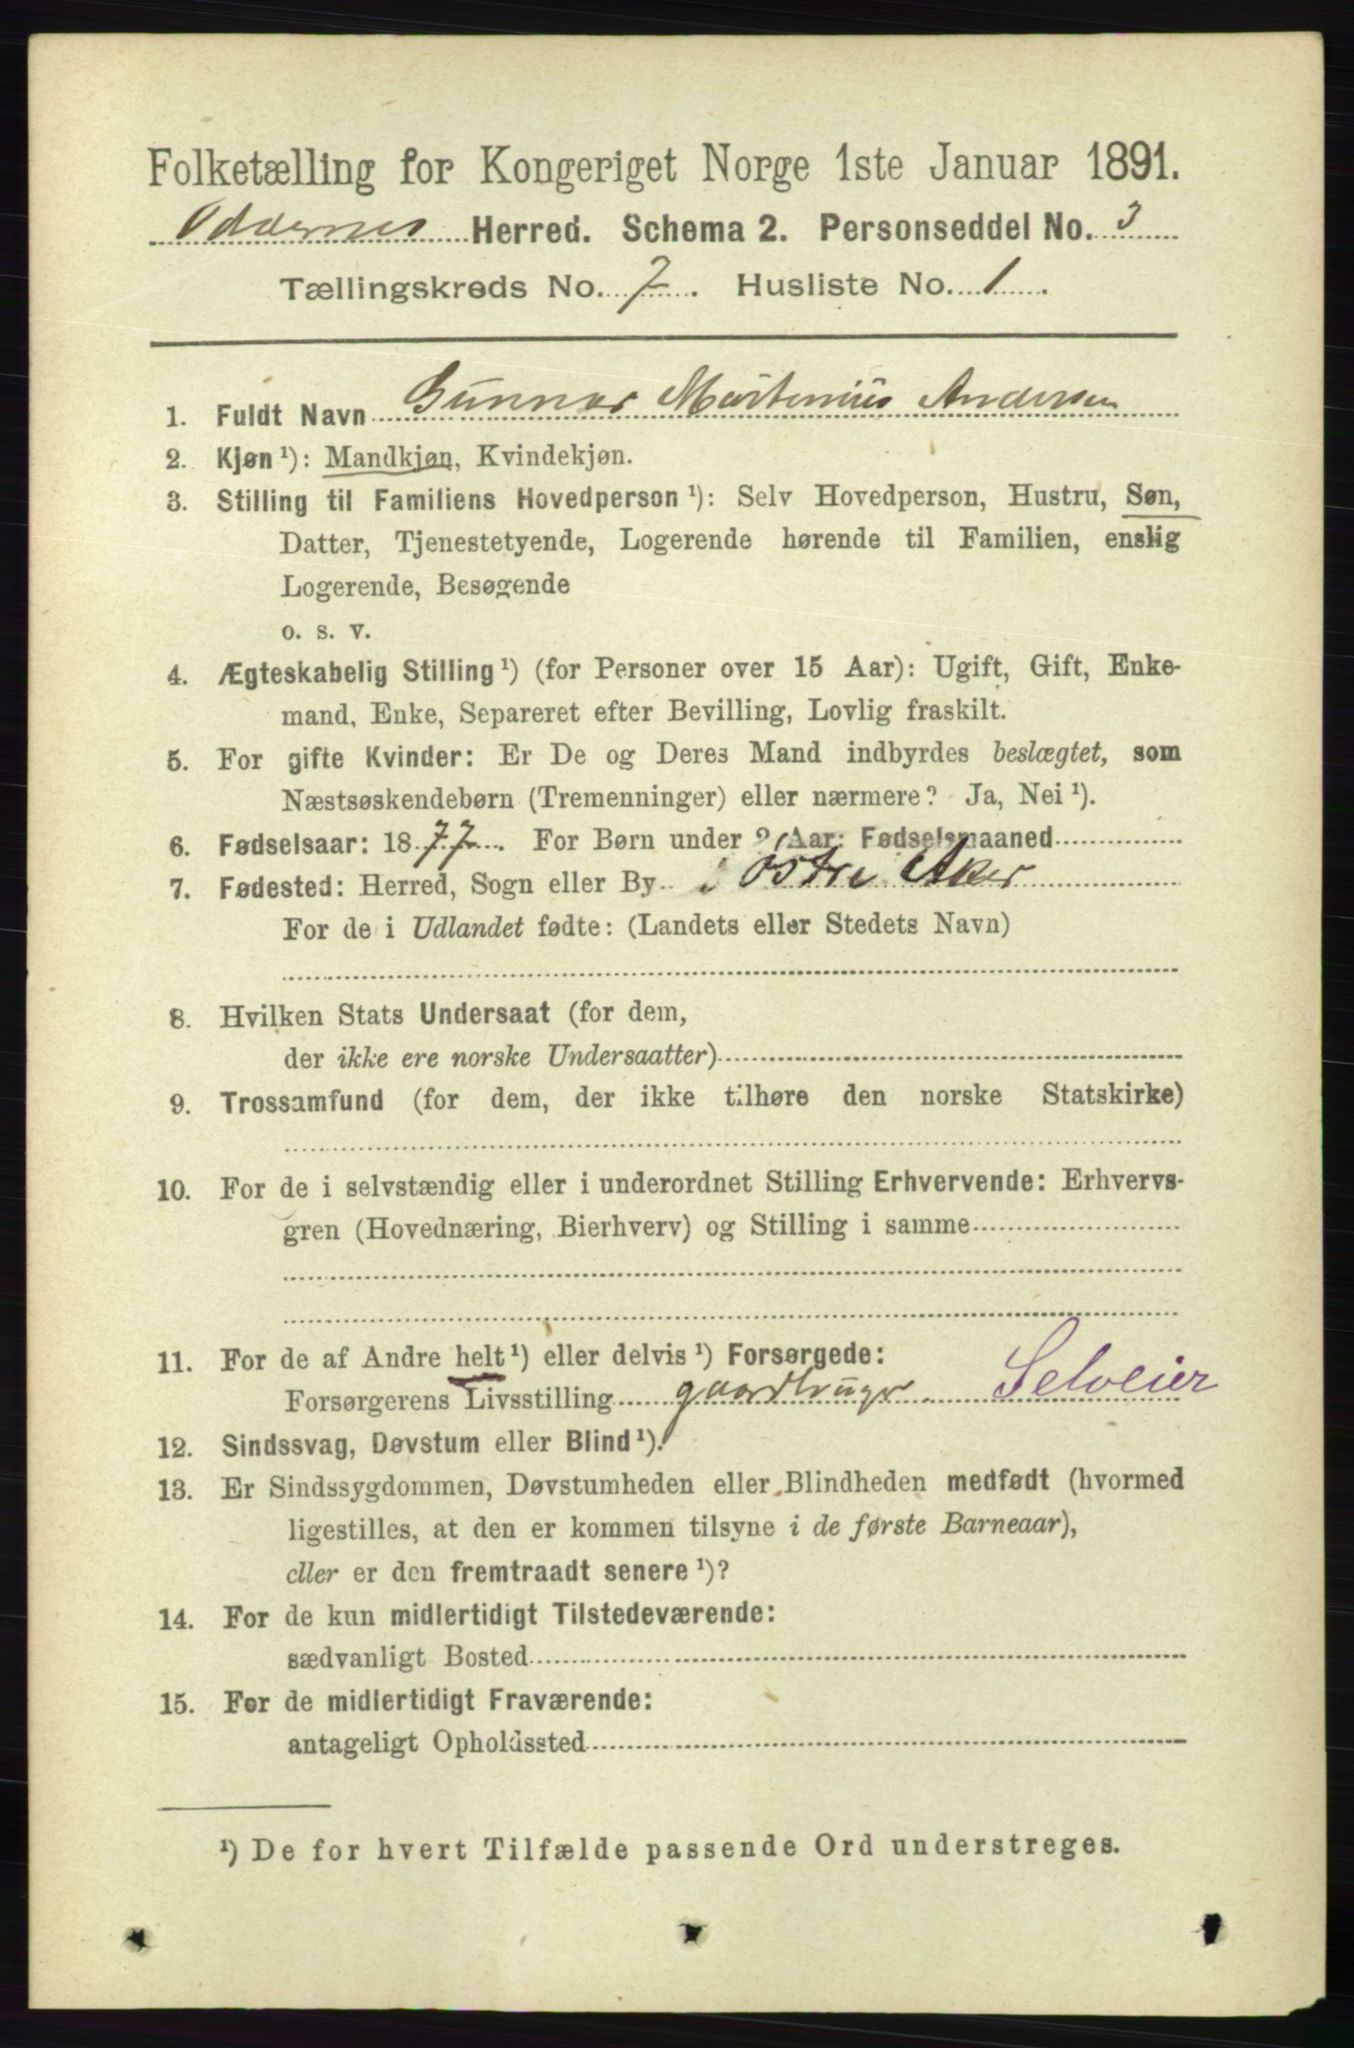 Folketælling for Kongeriget Norge 1ste Januar 1891.
Oddernes Herred. Schema 2. Personseddel No. 3
Tællingskreds No. 7. Husliste No. 1.
1. Fuldt Navn Gunnar Martenius Andersen
2. Kjøn ¹): Mandkjøn, Kvindekjøn.
3. Stilling til Familiens Hovedperson ¹): Selv Hovedperson, Hustru, Søn,
Datter, Tjenestetyende, Logerende hørende til Familien, enslig
Logerende, Besøgende
o. s. v.
4. Ægteskabelig Stilling ¹) (for Personer over 15 Aar): Ugift, Gift, Enke-
mand, Enke, Separeret efter Bevilling, Lovlig fraskilt.
5. For gifte Kvinder: Er De og Deres Mand indbyrdes beslægtet, som
Næstsøskendebørn (Tremenninger) eller nærmere? Ja, Nei ¹).
6. Fødselsaar: 1877. For Børn under 2 Aar: Fødselsmaaned
7. Fødested: Herred, Sogn eller By i Østre Aker
For de i Udlandet fødte: (Landets eller Stedets Navn)
8. Hvilken Stats Undersaat (for dem,
der ikke ere norske Undersaatter)
9. Trossamfund (for dem, der ikke tilhøre den norske Statskirke)
10. For de i selvstændig eller i underordnet Stilling Erhvervende: Erhvervs-
gren (Hovednæring, Bierhverv) og Stilling i samme
11. For de af Andre helt ¹) eller delvis ¹) Forsørgede:
Forsørgerens Livsstilling gaardbruger. Selveier
12. Sindssvag, Døvstum eller Blind ¹).
13. Er Sindssygdommen, Døvstumheden eller Blindheden medfødt (hvormed
ligestilles, at den er kommen tilsyne i de første Barneaar),
eller er den fremtraadt senere ¹)?
14. For de kun midlertidigt Tilstedeværende:
sædvanligt Bosted
15. For de midlertidigt Fraværende:
antageligt Opholdssted
¹) De for hvert Tilfælde passende Ord understreges.